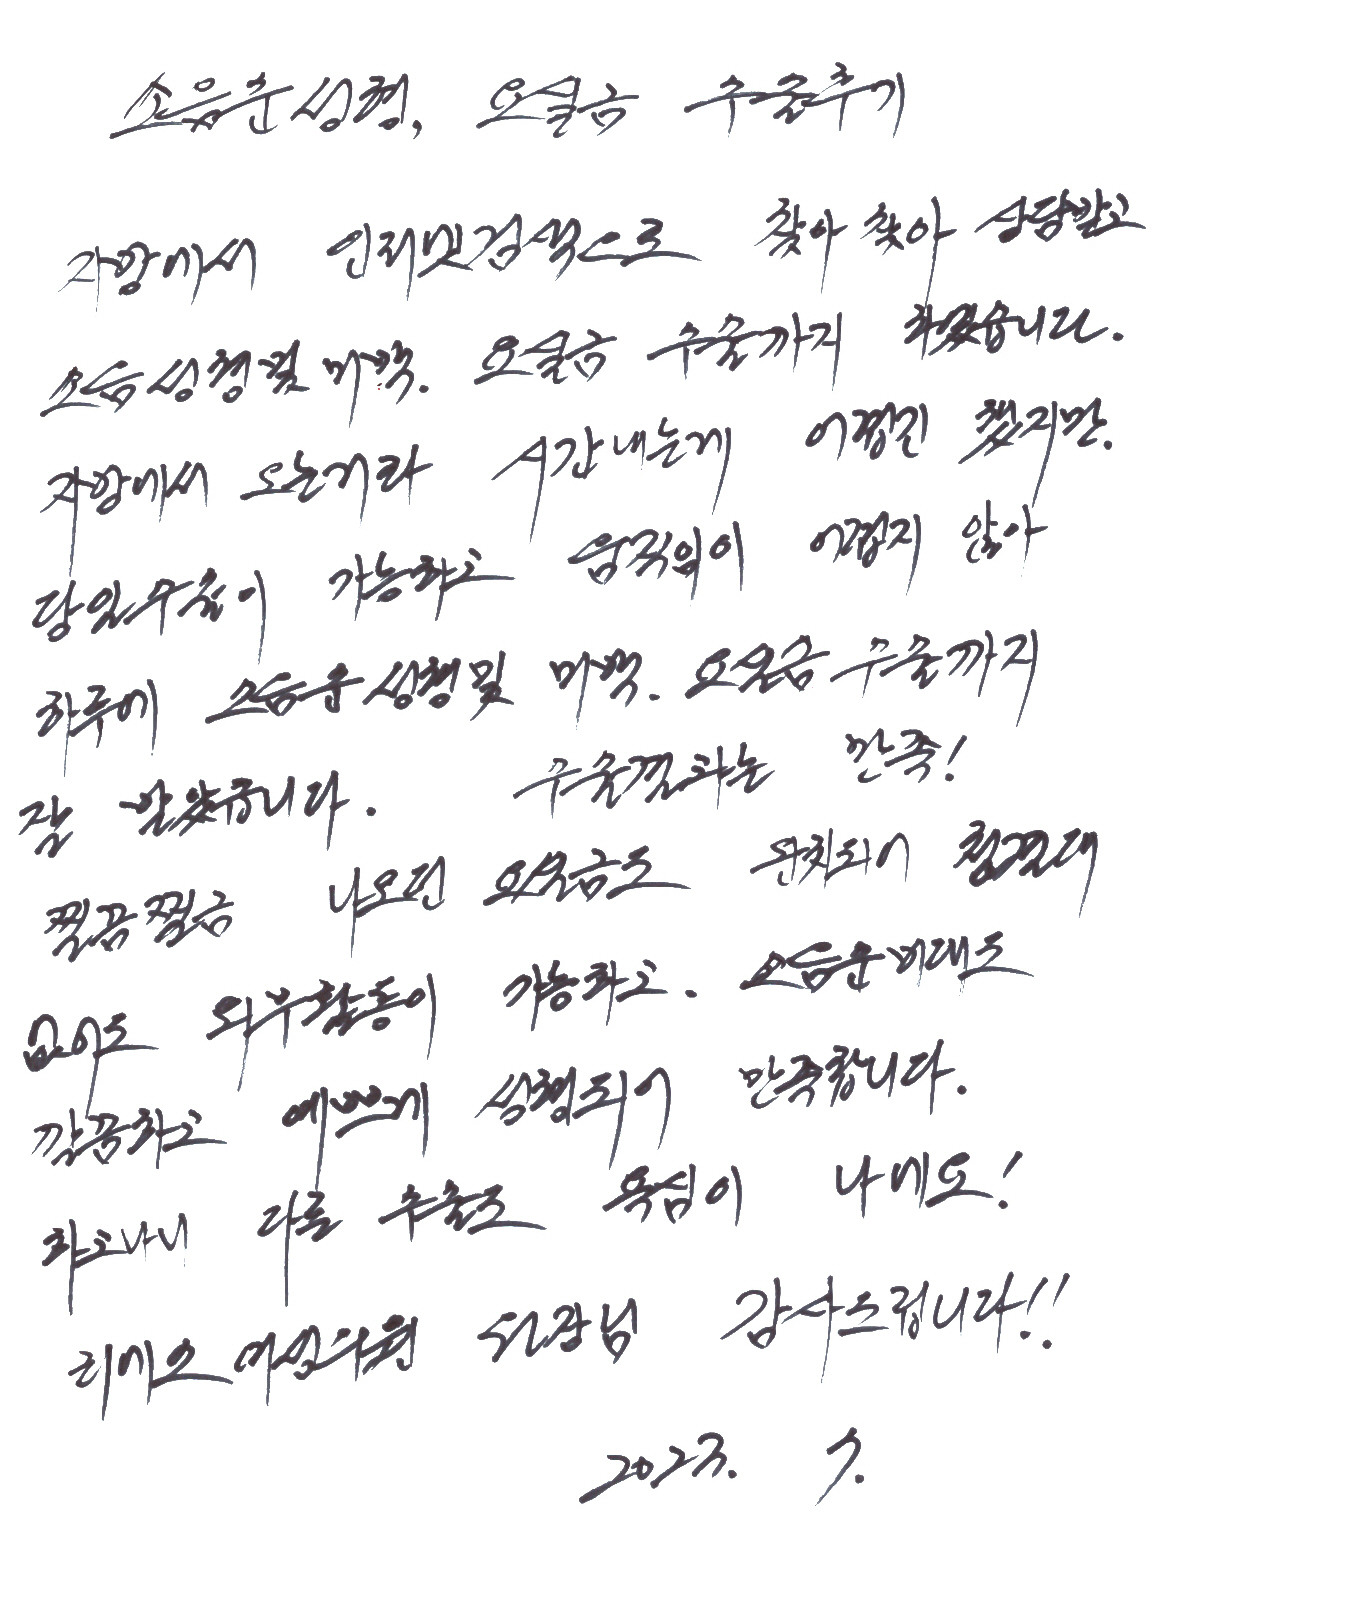 소음순성형, 요실금 수술후기
지방에서 인터넷검색으로 찾아 찾아 상담받고
소음성형및 미백. 요실금 수술까지 하였습니다.
지방에서 오는거라 시간내는게 어렵긴 했지만.
당일수술이 가능하고 움직임이 어렵지 않아
하루에 소음순성형및 미백. 요실금 수술까지
잘 받았습니다. 수술결과는 만족!
찔끔찔금 나오던 요실금도 완치되어 청결대
없이도 외부활동이 가능하고. 소음순비대도
깔끔하고 예쁘게 성형되어 만족합니다.
하고나니 다른 수술도 욕심이 나네요!
리에스여성의원 원장님 감사드립니다!!
2023. 7.